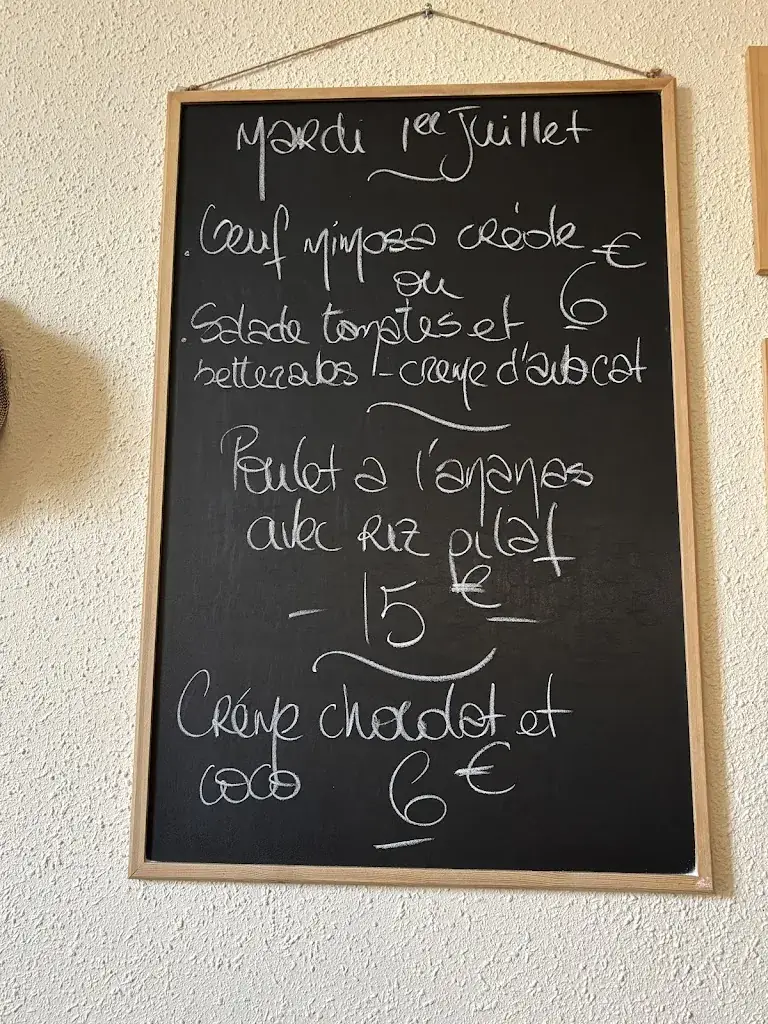 Mardi 1er Juillet
. Oeuf mimosa créole €
ou 6
. Salade tomates et
betteraves - creme d'avocat
Poulet a l'ananas
avec RIZ pilaf
- 15 € -
Créme chocolat et
coco 6 €